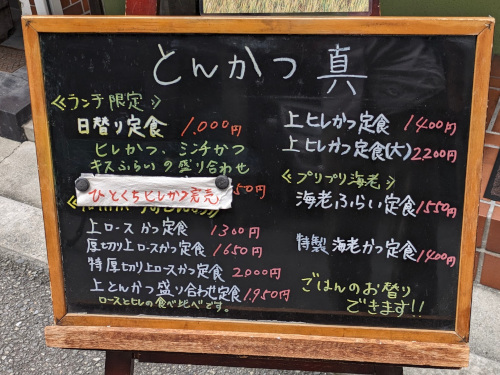 とんかつ 真
≪ランチ限定≫
日替り定食 1.000円
ヒレかつ、ミンチかつ
キスふらいの盛り合わせ
50円
ひとくちヒレかつ完売
上ロース かつ定食 1300円
厚切り上ロースかつ定食 1650円
特厚切り上ロースかつ定食 2000円
上とんかつ盛り合わせ定食 1.950円
ロースとヒレの食べ比べです。
上ヒレかつ定食 1400円
上ヒレかつ定食(大) 2200円
≪プリプリ海老≫
海老ふらい定食 1550円
特製 海老かつ定食 1400円
ごはんのお替り
できます!!